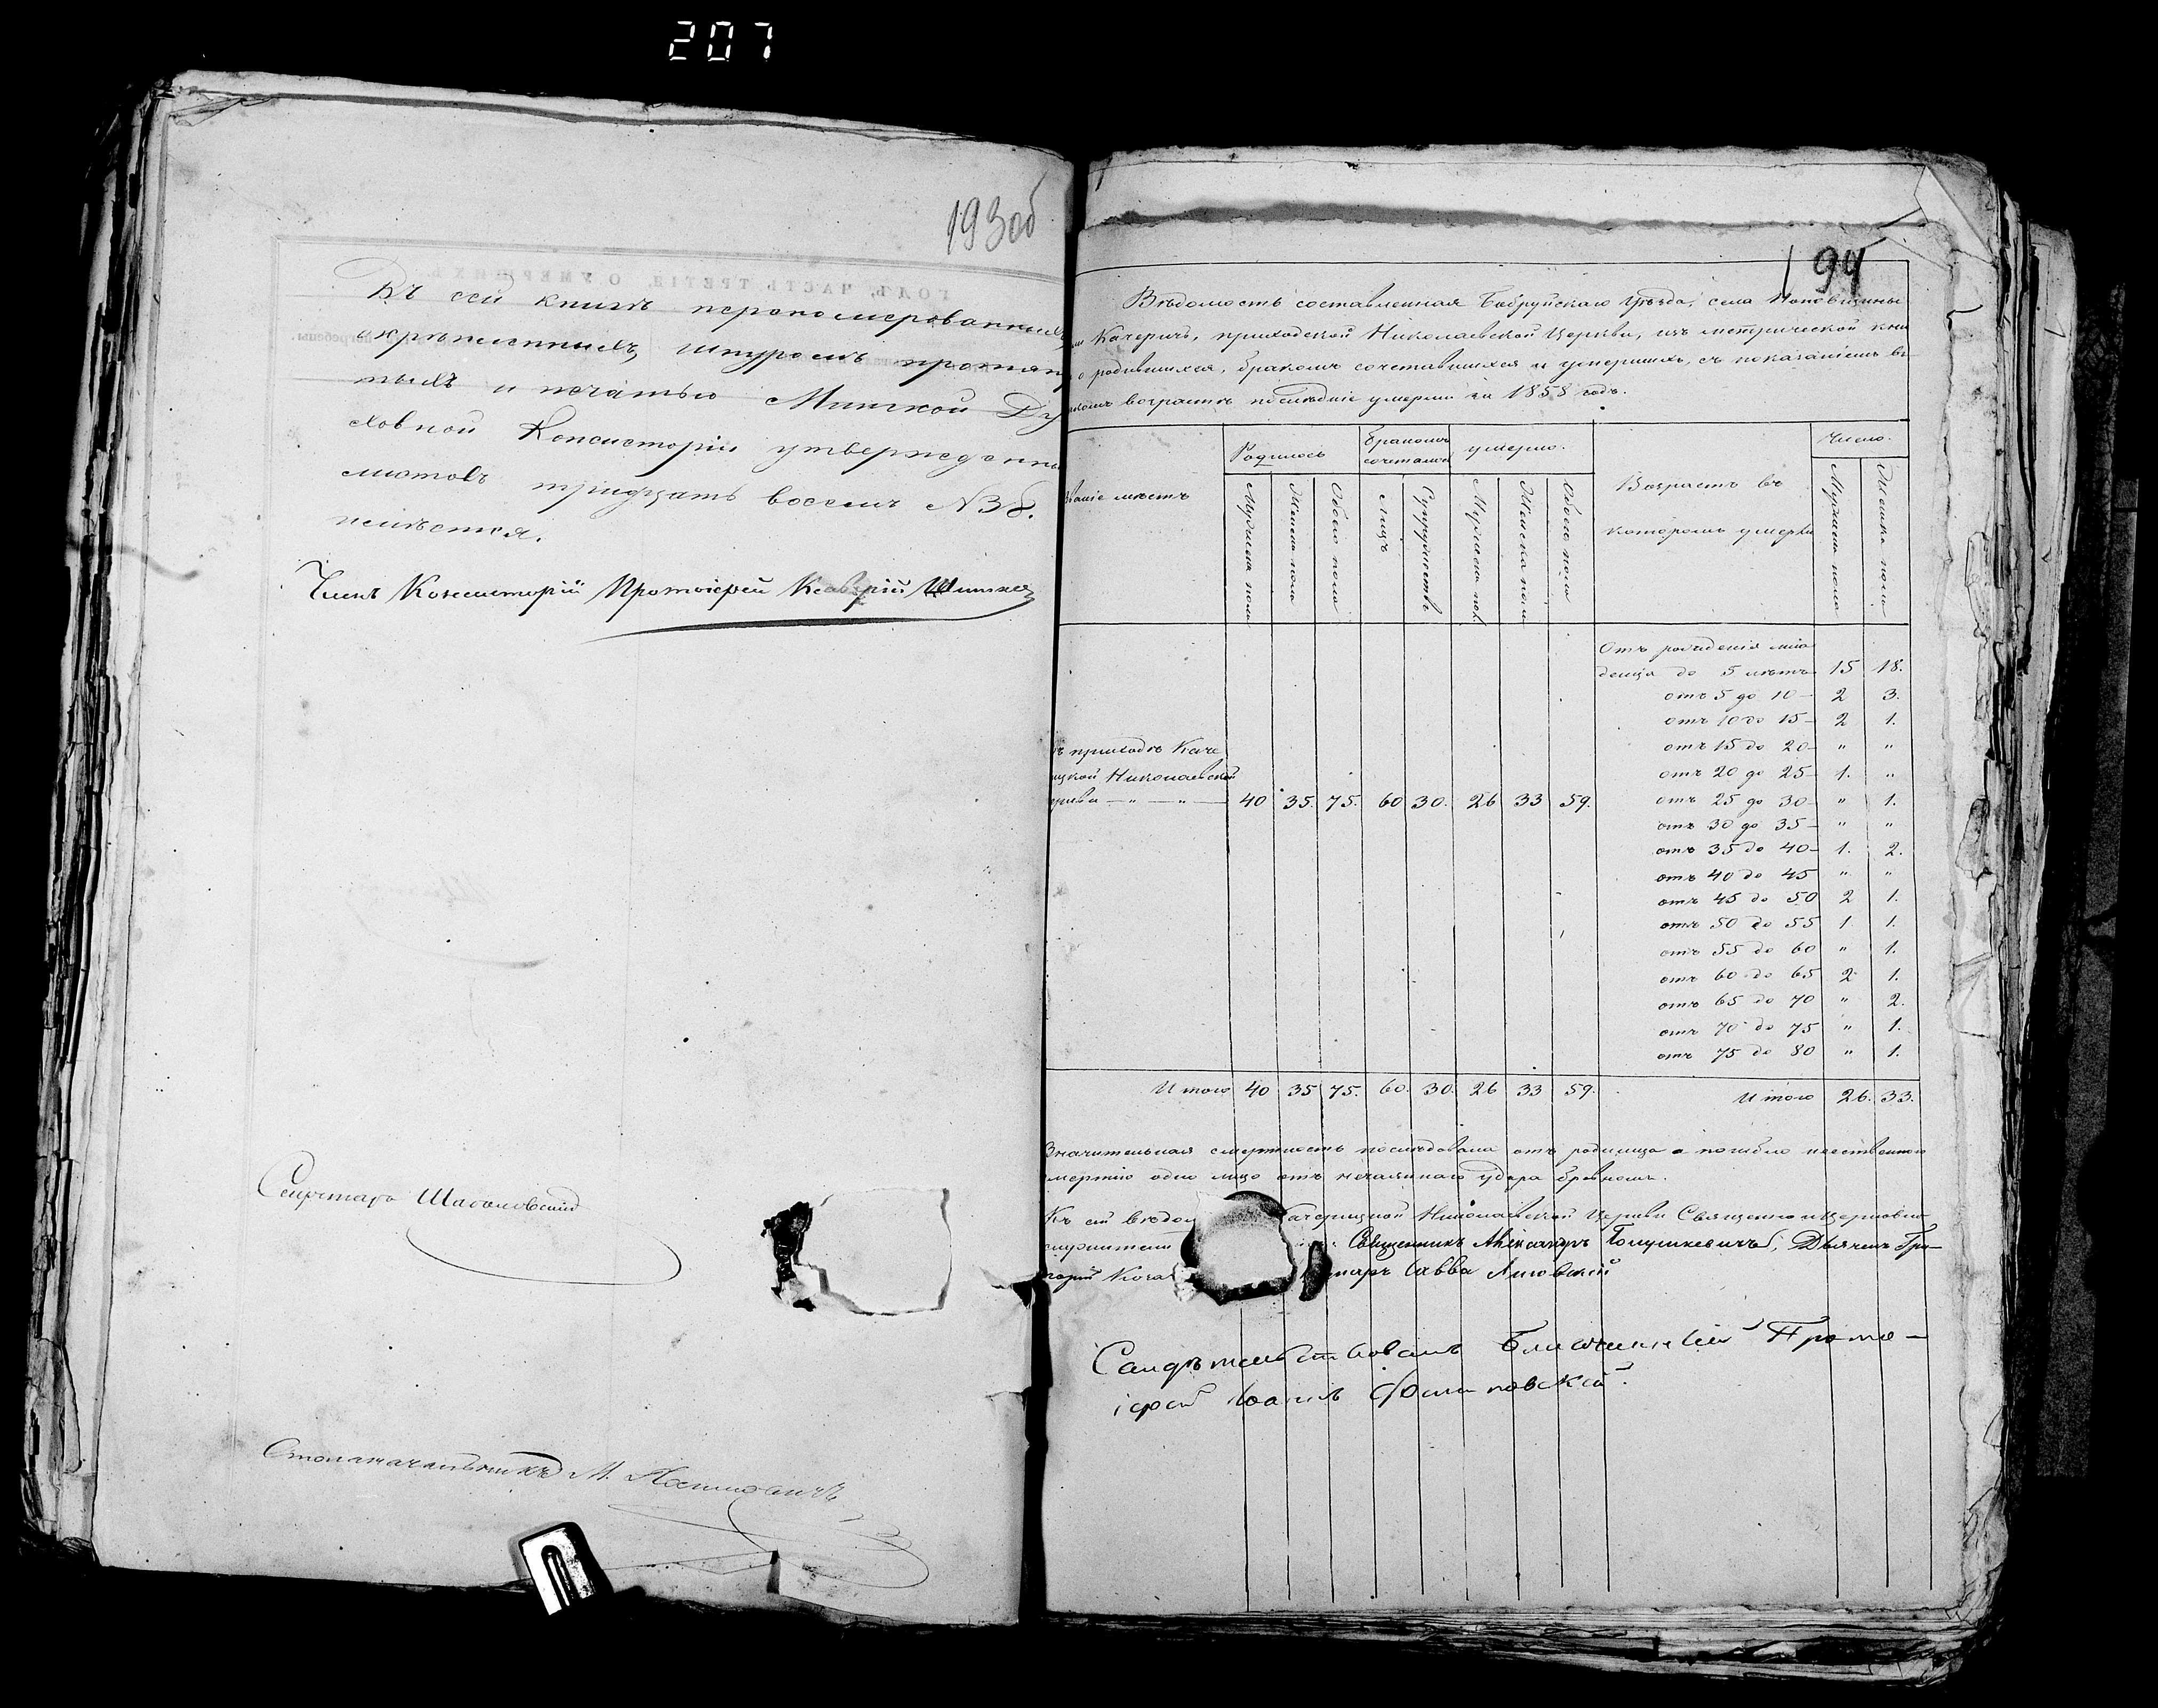 207
193об
Въ сей книгѣ перономерованныхъ,
скрѣпленныхъ, шнуромъ протяну
тыхъ и печатью Минской Ду
ховной Консисторіи утвержденны
листовъ тридцать восемь N 38.
имѣется.
Членъ Консисторіи Протоіерей
Секретарь
Столоначальникъ М.
194
Вѣдомость составленная Бобруйскаго Уѣзда, села Поповщины
или Качеричь, приходской Николаевской Церкви, изъ метрической кни
о родившихся, бракомъ сочетавшихся и умершихъ, съ показаніемъ въ
какомъ возрастѣ послѣдніе умерли за 1858 годъ.
званіе мѣстъ
Родилось
Бракомъ сочеталось
умерло.
Возрастъ въ
которомъ умерли
Число.
Мужеска пола
Женска пола
Обоего пола
лицъ
Супружествъ
Мужеска пол.
Женска пола
Обоего пола
Мужеска пола
Женска пола
Отъ рожденія мла
денца до 5 лѣтъ 15 18.
отъ 5 до 10 — 2 3.
отъ 10 до 15 — 2 1.
отъ 15 до 20 — " "
отъ 20 до 25 — 1. "
отъ 25 до 30 — " 1.
отъ 30 до 35 — " "
отъ 35 до 40 — 1. 2.
отъ 40 до 45 " "
отъ 45 до 50 2 1.
отъ 50 до 55 1 1.
отъ 55 до 60 " 1.
отъ 60 до 65 2 1.
отъ 65 до 70 " 2.
отъ 70 до 75 " 1.
отъ 75 до 80 " 1.
въ приходѣ Каче
рицкой Николаевской
церкви — " — " — 40 35. 75. 60 30. 26 33 59.
Итого 40 35 75. 60. 30. 26 33 59. Итого 26. 33.
Значительная смертность послѣдовала отъ родимца а погибло неественною
смертію одно лицо отъ нечаяннаго удара бревномъ.
Къ сей вѣдо Качерицкой Николаевской Церкви Священно и Церковно
служители Священникъ Александръ Дьячекъ Гри
горій марь Савва
Свидѣтельствовалъ Благочинный Прото
іерей Іоаннъ